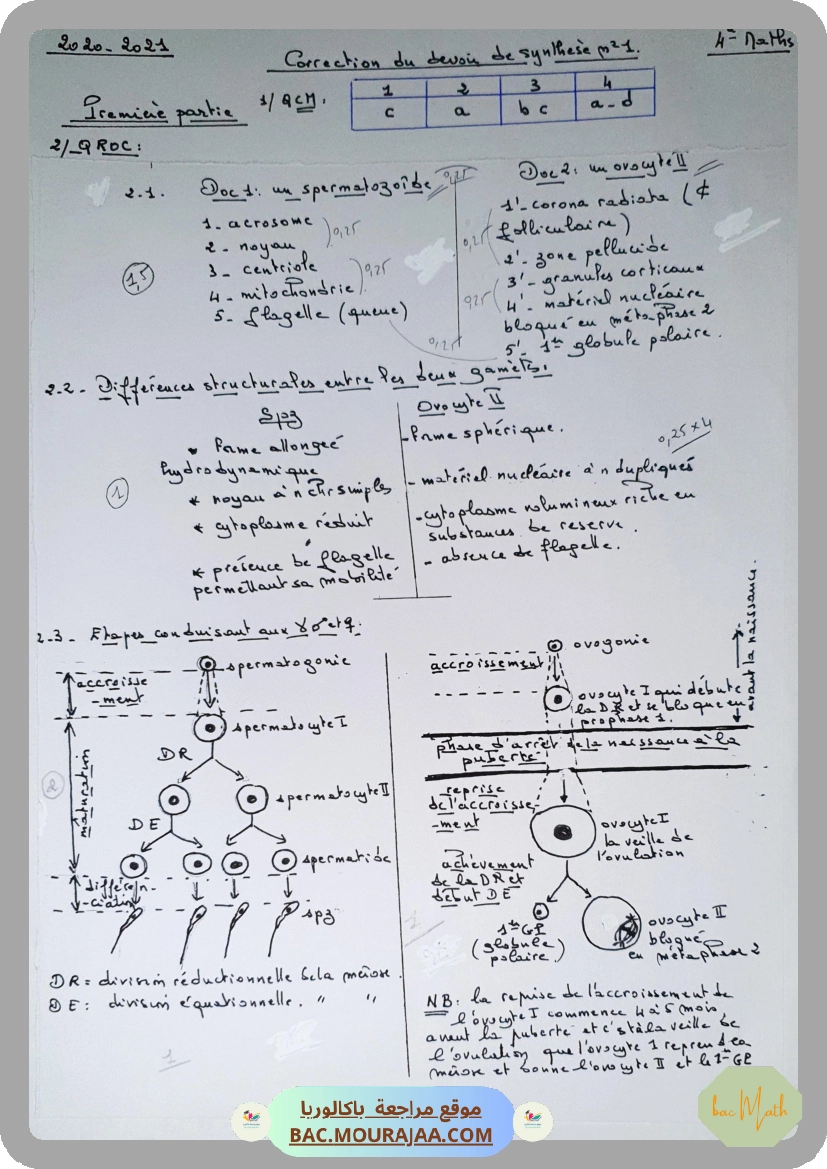 2020-2021
4ème Maths
Correction du devoir de synthèse n°1.
Première partie
1/ QCM :
1 2 3 4
c a b c a-d
2/ QROC :
2.1. Doc 1 : un spermatozoïde 0,25
1- acrosome
2- noyau
0,25
3- centriole
4- mitochondrie
0,25
5- flagelle (queue)
0,25
1,5
Doc 2 : un ovocyte II
1'- corona radiata (¢
folliculaire)
0,25
2'- zone pellucide
3'- granules corticaux
0,25
4'- matériel nucléaire
bloqué en métaphase 2
5'- 1er globule polaire.
2.2- Différences structurales entre les deux gamètes.
Spz
• forme allongée
hydrodynamique
* noyau à n chr simples
* cytoplasme réduit
* présence de flagelle
permettant sa mobilité
1
Ovocyte II
- forme sphérique.
0,25 x 4
- matériel nucléaire à n dupliqués
- cytoplasme volumineux riche en
substances de reserve.
- absence de flagelle.
2.3- Etapes conduisant aux γ♂ et ♀.
spermatogonie
accroisse
-ment
spermatocyte I
DR
maturation
2
spermatocyte II
DE
spermatide
différen-
-ciation
spz
DR = division réductionnelle de la méiose.
DE : division équationnelle. " "
1
ovogonie
accroissement
ovocyte I qui débute
la DR et se bloque en
prophase 1.
avant la naissance.
phase d'arrêt de la naissance à la
puberté
reprise
de l'accroisse-
-ment
ovocyte I
la veille de
l'ovulation
achèvement
de la DR et
début DE
1er GP
(globule
polaire)
ovocyte II
bloqué
en métaphase 2
1
NB : la reprise de l'accroissement de
l'ovocyte I commence 4 à 5 mois
avant la puberté et c'est à la veille de
l'ovulation que l'ovocyte 1 reprend la
méiose et donne l'ovocyte II et le 1er GP
موقع مراجعة باكالوريا
BAC.MOURAJAA.COM
bac Math